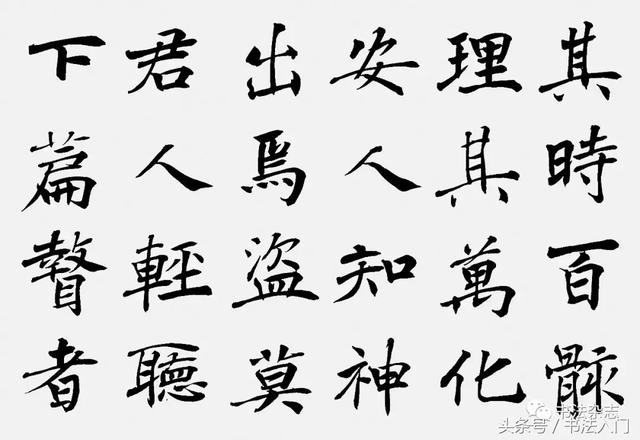 其時百骸
理其萬化
安人知神
出焉盜莫
君人輕聽
下篇瞽者
书法杂志
头条号 / 书法入门